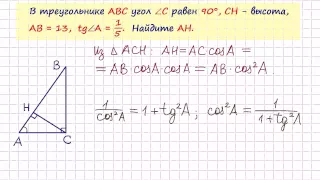 В треугольнике ABC угол ∠C равен 90°, CH - высота,
AB = 13, tg∠A = 1/5. Найдите AH.
Из △ACH: AH=AC cosA =
= AB·cosA·cosA = AB·cos²A
1/cos²A = 1+tg²A ; cos²A = 1/(1+tg²A)
B
H
A
C